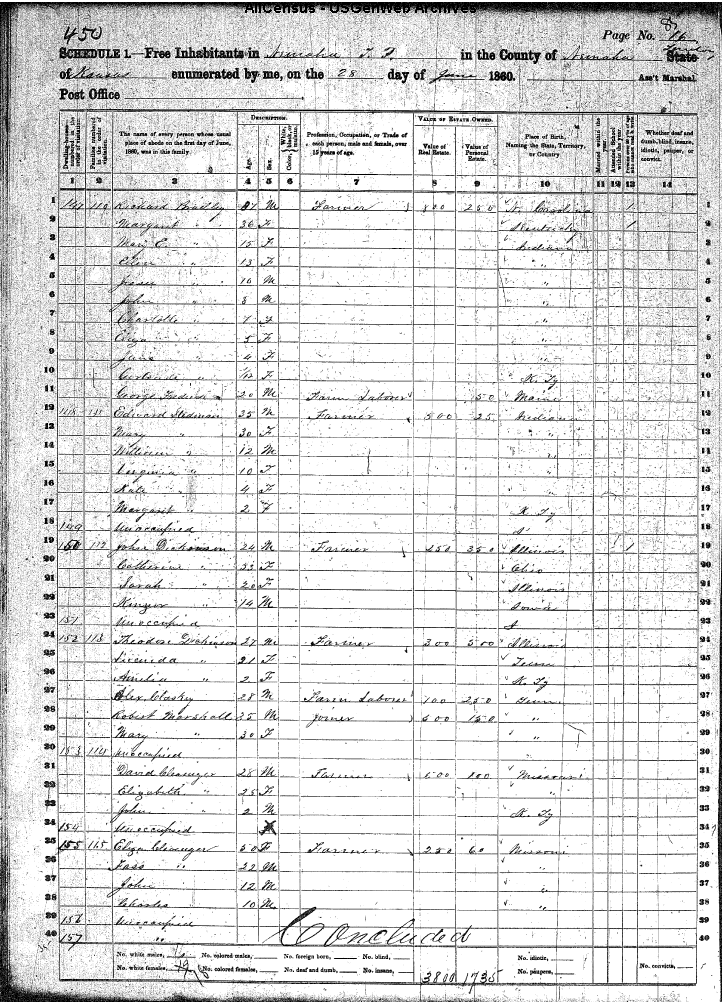 AllCensus - USGenWeb Archives
450
Page No. 16
SCHEDULE 1.—Free Inhabitants in Nemaha T. P. in the County of Nemaha State
of Kansas enumerated by me, on the 28 day of June 1860. Ass't Marshal
Post Office
DESCRIPTION. VALUE OF ESTATE OWNED.
Dwelling-houses numbered in the order of visitation. Families numbered in the order of visitation. The name of every person whose usual place of abode on the first day of June, 1860, was in this family. Age. Sex. Color, White, black, or mulatto. Profession, Occupation, or Trade of each person, male and female, over 15 years of age. Value of Real Estate. Value of Personal Estate. Place of Birth, Naming the State, Territory, or Country. Married within the year. Attended School within the year. Whether deaf and dumb, blind, insane, idiotic, pauper, or convict.
1 2 3 4 5 6 7 8 9 10 11 12 13 14
1 Richard 47 M Farmer 800 250 N. Carolina 1 1
2 Margaret " 36 F Kentucky 1 2
3 " 15 F Indiana 3
4 Ellen " 13 F " 4
5 " 10 M " 5
6 John " 8 M " 6
7 Charlotte " 7 F " 7
8 " 5 F " 8
9 Jane " 4 F " 9
10 Gertrude " F K. Ty 10
11 George 20 M Farm Laborer 50 Maine 11
12 Edward Stedman 35 M Farmer 500 25 Indiana 12
13 Mary " 30 F " 13
14 William " 12 M " 14
15 Virginia " 10 F " 15
16 Kate " 4 F " 16
17 Margaret " 2 F K. Ty 17
18 149 Unoccupied 18
19 150 112 John Dickinson 24 M Farmer 250 350 Illinois 1 19
20 Catherine " 33 F Ohio 20
21 Sarah " 20 F Illinois 21
22 " 14 M Iowa 22
23 151 Unoccupied 23
24 152 113 Theodore Dickinson 27 M Farmer 300 500 Illinois 24
25 Lucinda " 21 F Tenn 25
26 Amelia " 2 F K. Ty 26
27 Alex Claskey 28 M Farm Laborer 100 250 Tenn 27
28 Robert Marshall 35 M Joiner 600 150 " 28
29 Mary " 30 F " 29
30 153 114 Unoccupied 30
31 David Clevenger 28 M Farmer 600 100 Missouri 31
32 Elizabeth " 25 F " 32
33 John " 2 M K. Ty 33
34 154 Unoccupied 34
35 155 115 Eliza Clevenger 50 F Farmer 250 60 Missouri 35
36 " 22 M " 36
37 John " 12 M " 37
38 Charles " 10 M " 38
39 156 Unoccupied 39
40 157 " Concluded 40
No. white males, No. colored males, No. foreign born, No. blind, No. idiotic,
No. white females, 19 No. colored females, No. deaf and dumb, No. insane, 3800 1735 No. paupers, No. convicts,